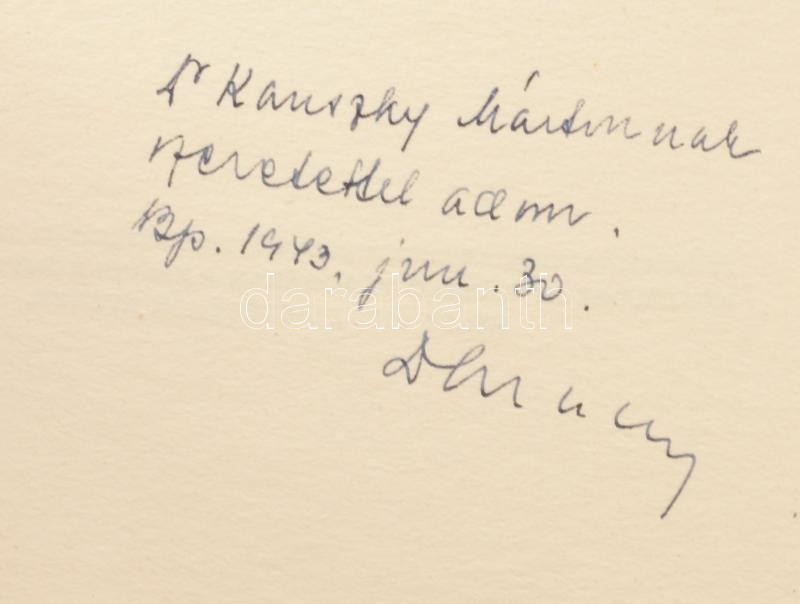 Dr Kanszky Mártonnak
szeretettel adom.
Bp. 1943. jun. 30.
darabanth